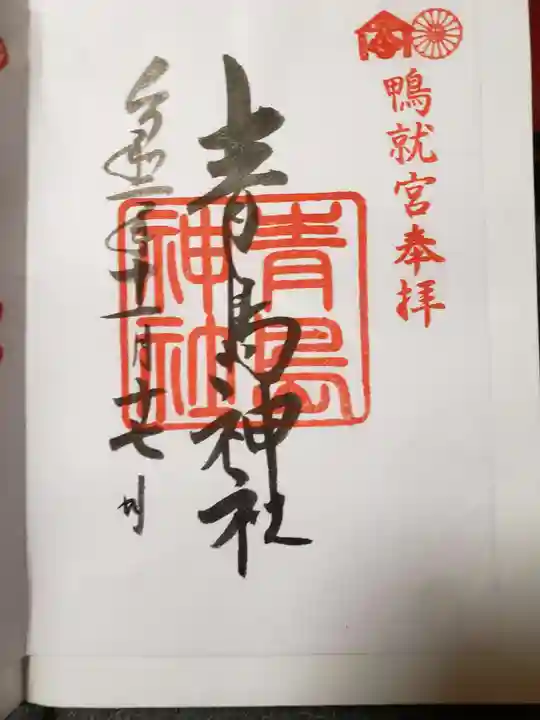 鴨就宮奉拝
青島神社
青島
神社
令和二年十一月十七日